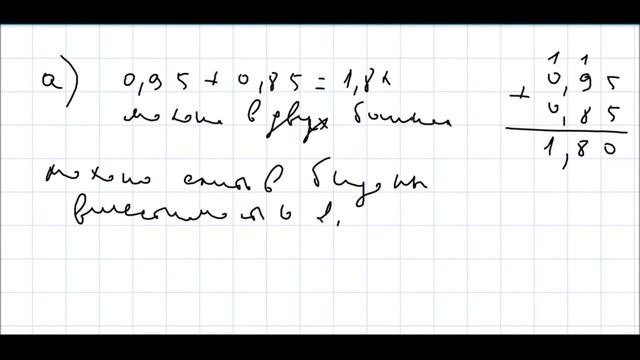 а) 0,95 + 0,85 = 1,8 л
молока в двух банках
можно слить в бидон
вместимостью л.
1 1
0,95
+
0,85
1,80